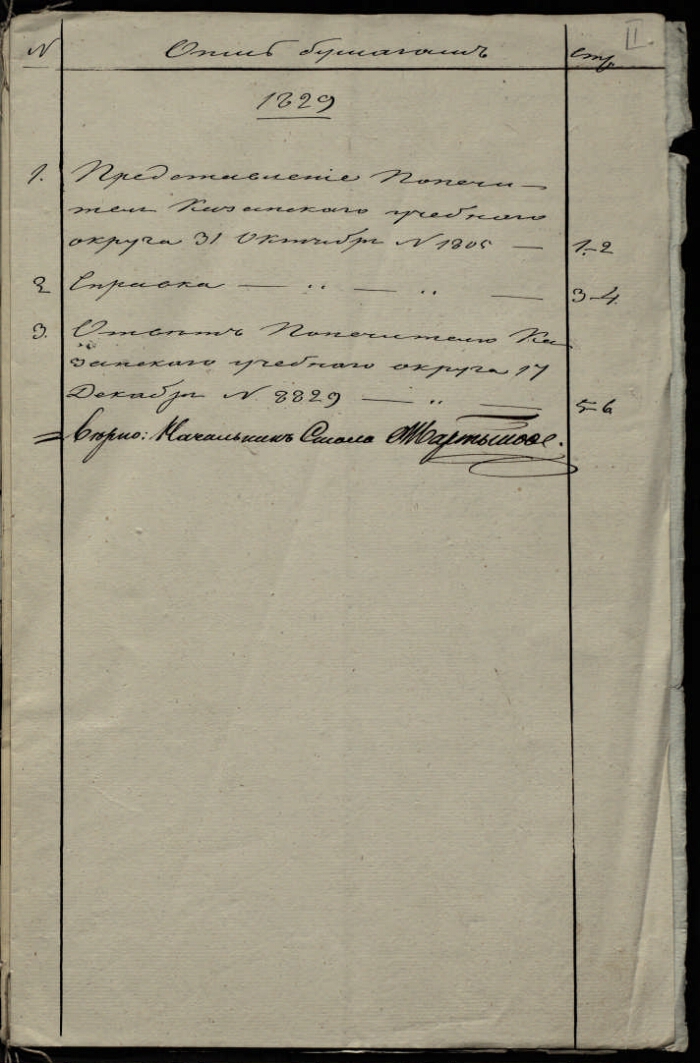 II.
N Опись бумагамъ стр.
1829
1. Представленiе Попечи-
теля Казанскаго учебнаго
округа 31 Октября N 1805 — 1-2
2 Справка — „ — „ — 3-4
3. Отвѣтъ Попечителю Ка-
занскаго учебнаго округа 17
Декабря N 8829 — „ — 5-6
Вѣрно: Начальникъ Стола